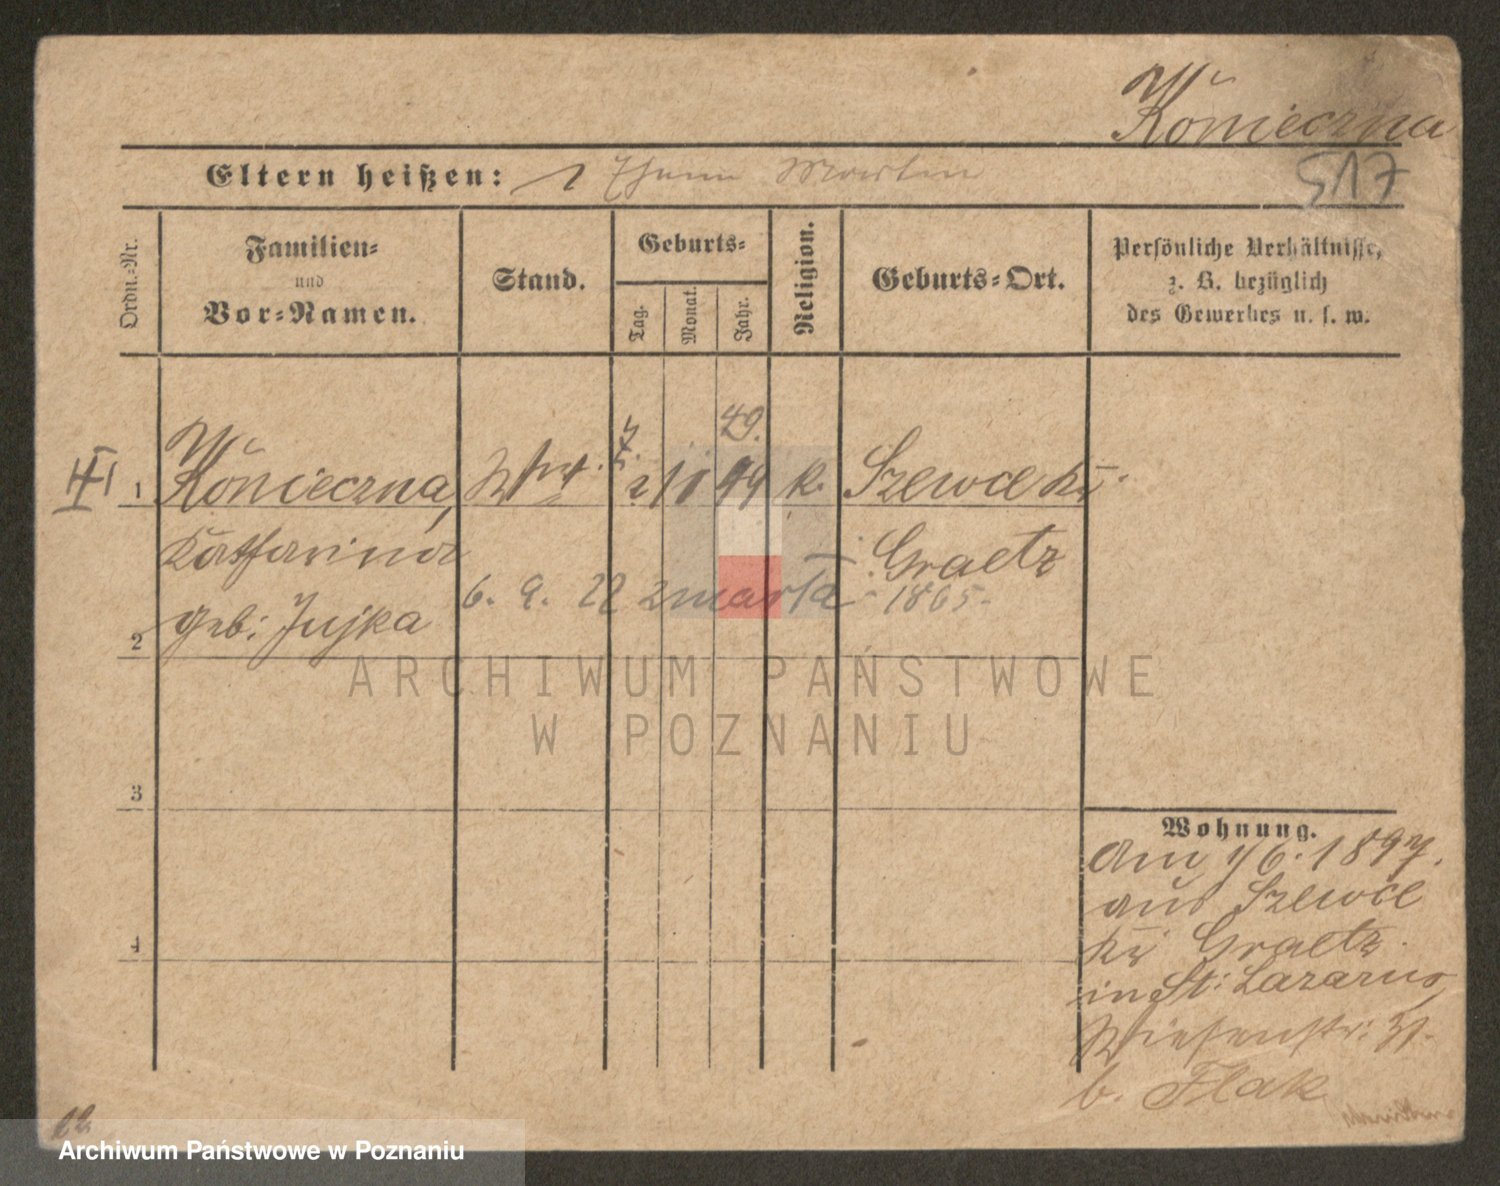 Konieczna
517
Eltern heißen: Martin
Ordn.-Nr.
Familien-
und
Vor-Namen.
Stand.
Geburts-
Tag.
Monat.
Jahr.
Religion.
Geburts-Ort.
Persönliche Verhältnisse,
z. B. bezüglich
des Gewerbes u. s. w.
49.
III 1 Konieczna, Wwe. k. Szewce Kr.
Katharina Graetz
6. 9. 22 zmarła 1865.
2 geb: Jujka
ARCHIWUM PAŃSTWOWE
W POZNANIU
3
Wohnung.
Am 1/6. 1897.
aus Szewce
4
Kr Graetz.
in St: Lazarus,
Wiesenstr:
b. Flak
12
Archiwum Państwowe w Poznaniu